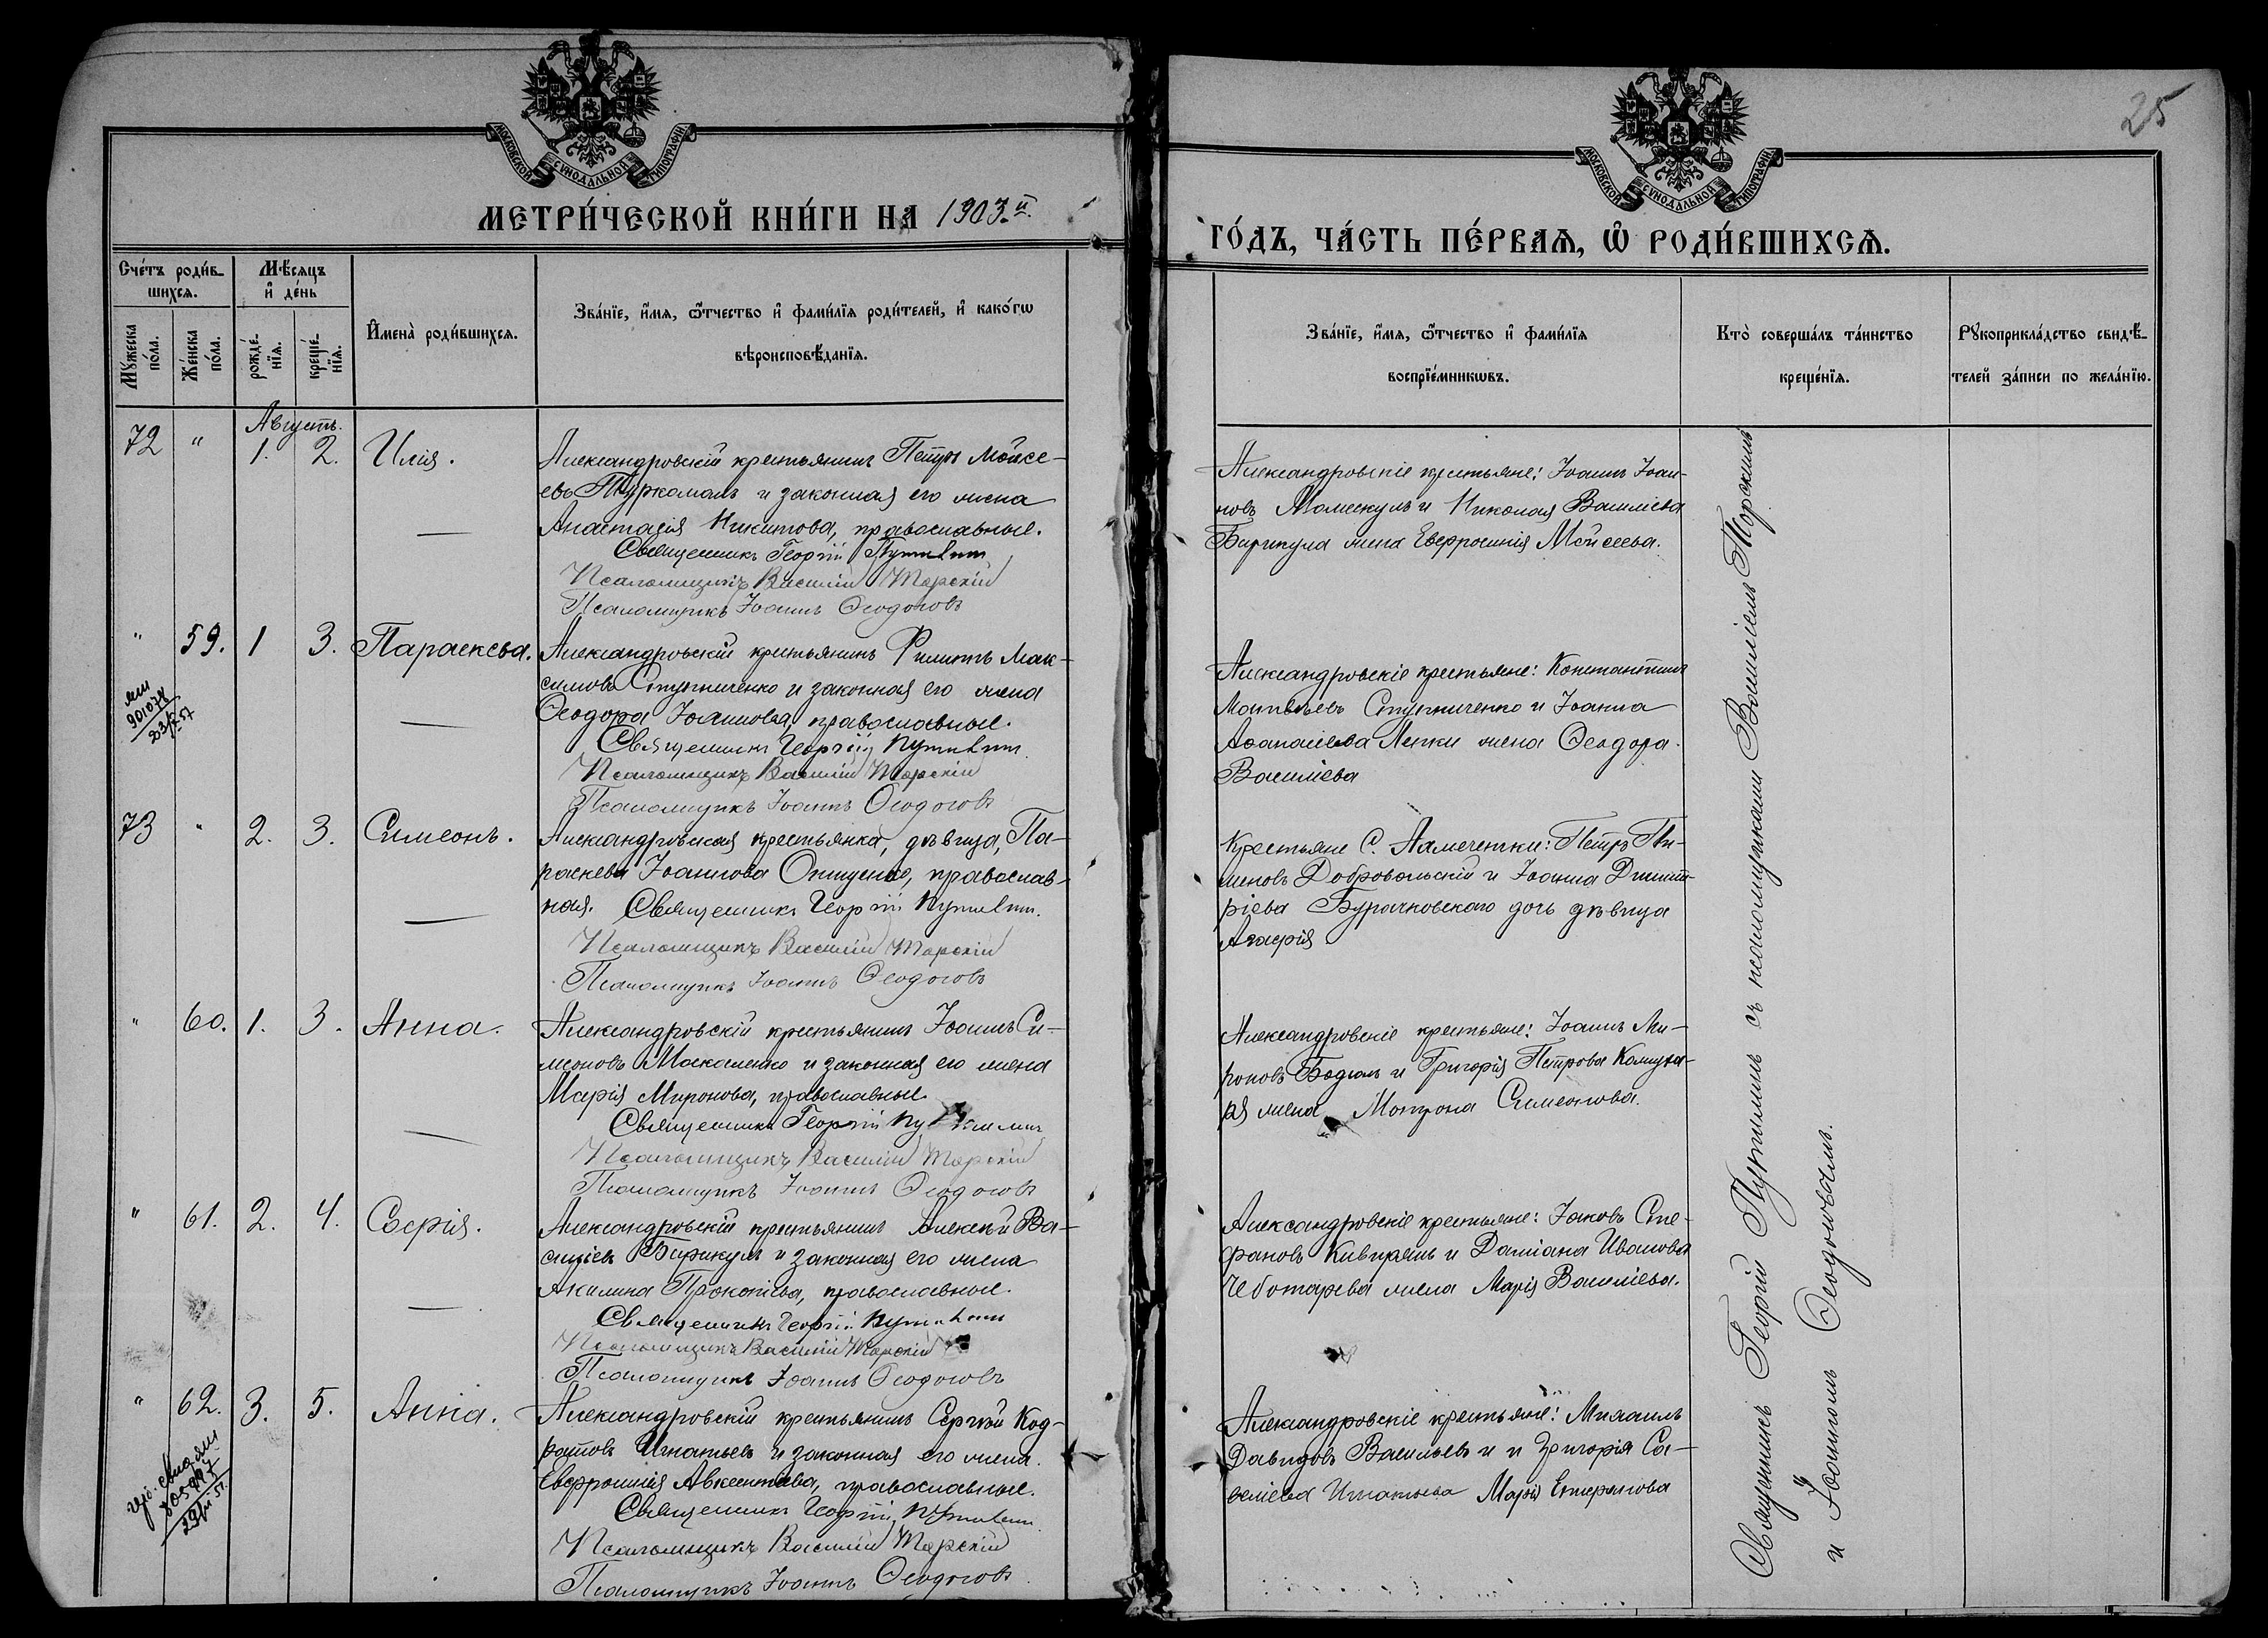 25
МОСКОВСКОЙ СѴНОДАЛЬНОЙ ТИПОГРАФІИ
МОСКОВСКОЙ СѴНОДАЛЬНОЙ ТИПОГРАФІИ
МЕТРИ́ЧЕСКОЙ КНИ́ГИ НА 1903.й
ГО́ДЪ, ЧА́СТЬ ПЕ́РВАѦ, Ѡ҆ РОДИ́ВШИХСѦ.
Сче́тъ роди́в-
шихсѧ.
Мꙋ́жеска
по́ла.
Же́нска
по́ла.
Мѣ́сѧцъ
и҆ де́нь
рожде́-
нїѧ.
креще́-
нїѧ.
И҆мена̀ роди́вшихсѧ.
Зва́нїе, и҆́мѧ, ѻ҆́тчество и҆ фами́лїѧ роди́телей, и҆ како́гѡ
вѣроисповѣ́данїѧ.
Зва́нїе, и҆́мѧ, ѻ҆́тчество и҆ фами́лїѧ
воспрїе́мникѡвъ.
Кто̀ соверша́лъ та́инство
креще́нїѧ.
Рꙋкоприкла́дство свидѣ́-
телей за́писи по жела́нїю.
Августъ.
72 " 1. 2. Илія.
Александровскій крестьянинъ Петръ Мойсе-
евъ Туркоманъ и законная его жена
Анастасія Никитова, православные.
Священникъ Георгій Путилинъ
Псаломщикъ Василій Торскій
Псаломщикъ Іоаннъ Ѳеодоговъ
Александровскіе крестьяне: Іоаннъ Іоан-
новъ и Николая Василіева
Бирикула жена Евфросинія Мойсеева.
" 59. 1 3. Параскева.
Александровскій крестьянинъ Филиппъ Мак-
симовъ Ступниченко и законная его жена
Ѳеодора Іоаннова, православные.
Священникъ Георгій Путилинъ.
Псаломщикъ Василій Торскій
Псаломщикъ Іоаннъ Ѳеодоговъ
Александровскіе крестьяне: Константинъ
Матвѣевъ Ступниченко и Іоанна
Аѳанасіева жена Ѳеодора
Василіева
73 " 2. 3. Симеонъ.
Александровская крестьянка, дѣвица, Па-
раскева Іоаннова Онищенко, православ-
ная. Священникъ Георгій Путилинъ.
Псаломщикъ Василій Торскій
Псаломщикъ Іоаннъ Ѳеодоговъ
Крестьяне С. Акмечетки: Петръ Пи-
меновъ Добровольскій и Іоанна Димит-
ріева Бурачковскаго дочь дѣвица
Агафія
" 60. 1. 3. Анна.
Александровскій крестьянинъ Іоаннъ Си-
меоновъ Москаленко и законная его жена
Марія Миронова, православные.
Священникъ Георгій Путилинъ
Псаломщикъ Василій Торскій
Псаломщикъ Іоаннъ Ѳеодоговъ
Александровскіе крестьяне: Іоаннъ Ми-
роновъ и Григорія Петрова
жена Матрона Симеонова.
" 61. 2. 4. Софія.
Александровскій крестьянинъ Алексѣй Ва-
силіевъ Бирикулъ и законная его жена
Акилина Прокопіева, православные.
Священникъ Георгій Путилинъ
Псаломщикъ Василій Торскій
Псаломщикъ Іоаннъ Ѳеодоговъ
Александровскіе крестьяне: Іаковъ Сте-
фановъ и Даміана Иванова
Чеботарева жена Марія Василіева.
" 62. 3. 5. Анна.
Александровскій крестьянинъ Сергѣй Код-
ратовъ Игнатьевъ и законная его жена
Евфросинія Авксентіева, православные.
Священникъ Георгій Путилинъ.
Псаломщикъ Василій Торскій
Псаломщикъ Іоаннъ Ѳеодоговъ
Александровскіе крестьяне: Михаилъ
Давидовъ Васильевъ и и Григорія Са-
веліева Игнатьева Марія
Священникъ Георгій Путилинъ съ псаломщиками Василіемъ Торскимъ
и Іоанномъ Ѳеодоговымъ.